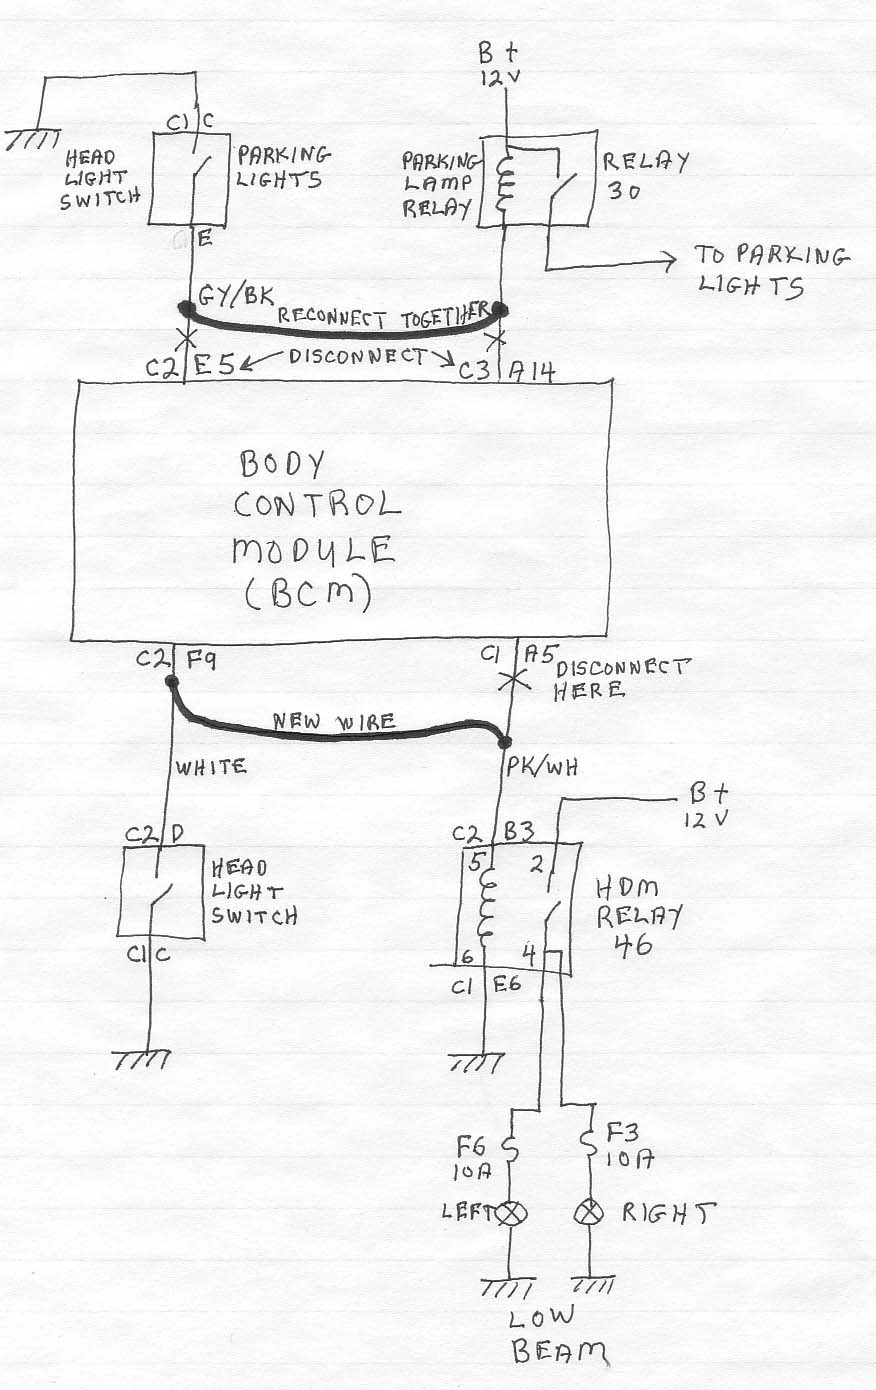 B+
12V
C1 C
HEAD
LIGHT
SWITCH
PARKING
LIGHTS
E
PARKING
LAMP
RELAY
RELAY
30
TO PARKING
LIGHTS
GY/BK
RECONNECT TOGETHER
DISCONNECT
C2 E5
C3 A14
BODY
CONTROL
MODULE
(BCM)
C2 F9
C1 A5
DISCONNECT
HERE
NEW WIRE
WHITE
PK/WH
B+
12V
C2 D
HEAD
LIGHT
SWITCH
C1 C
C2 B3
5 2
HDM
RELAY
46
6 4
C1 E6
F6
10A
F3
10A
LEFT
RIGHT
LOW
BEAM